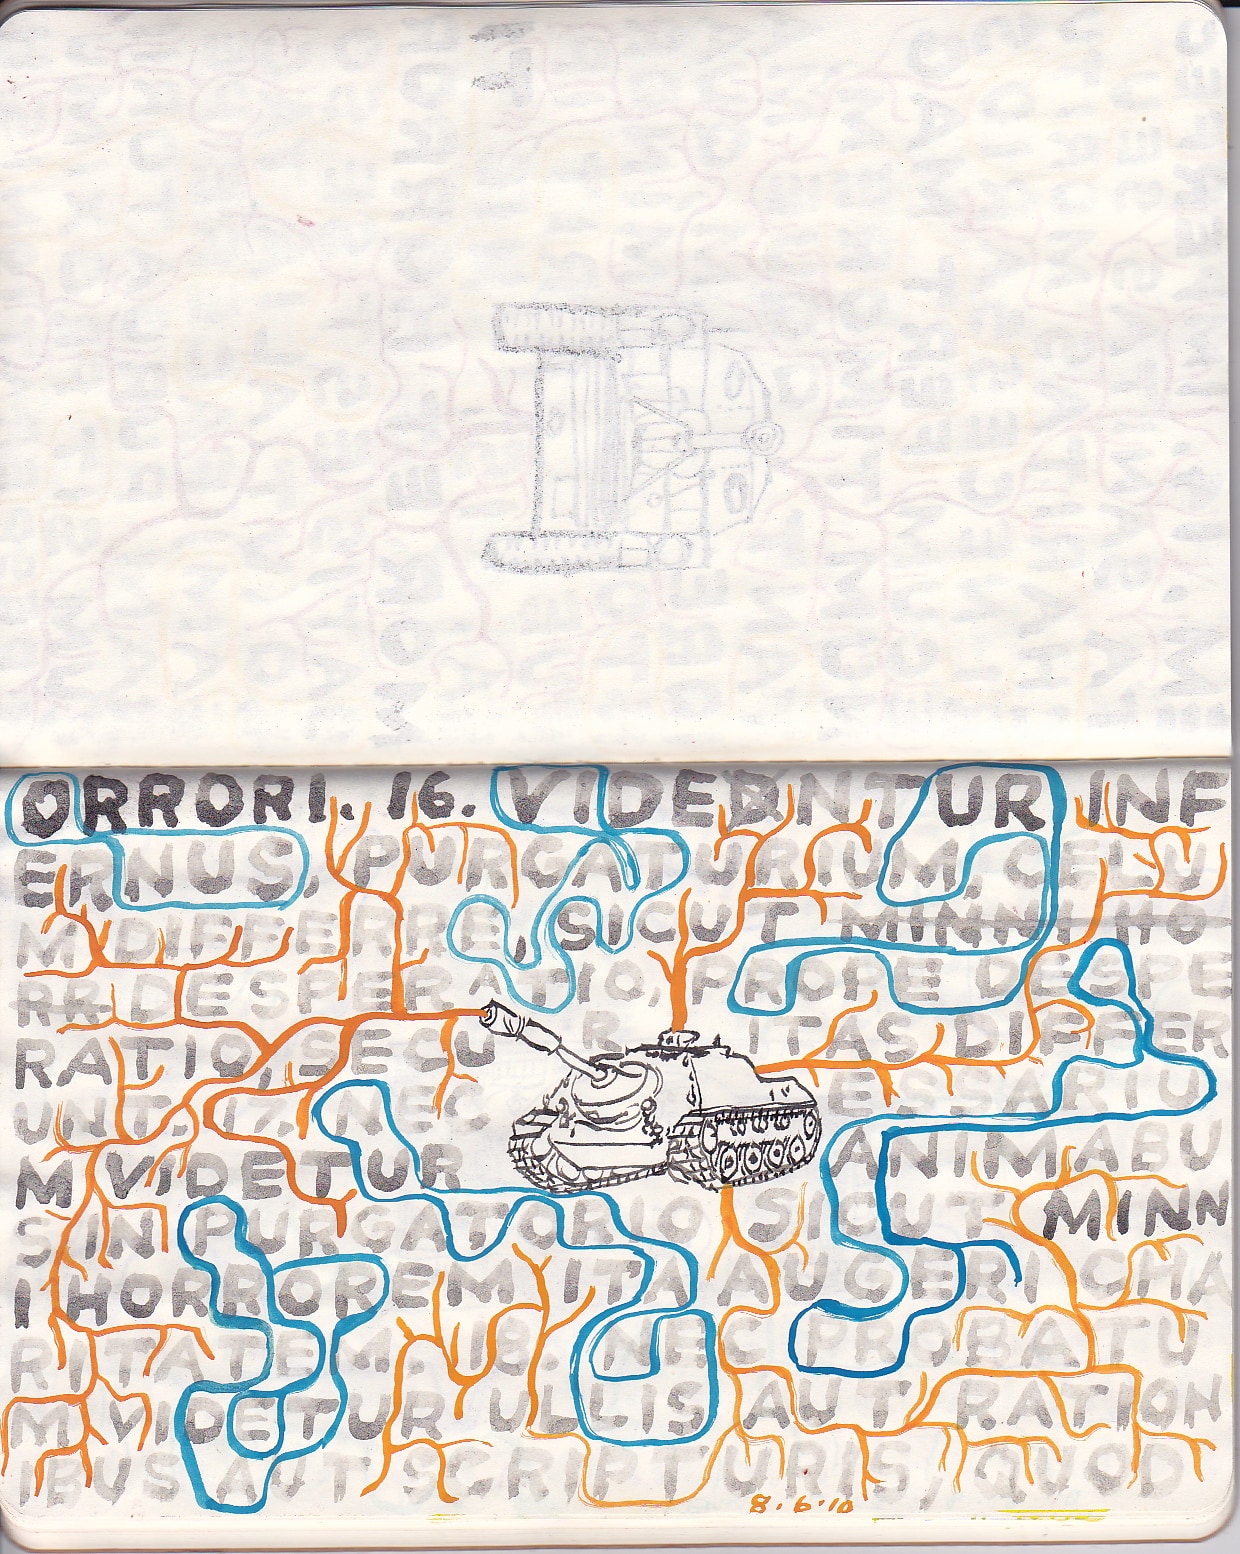 ORRORI. 16. VIDENTUR INF
ERNUS, PURGATURIUM, CELU
M DIFFERRE, SICUT MINNI HO
RR DESPERATIO, PROPE DESPE
RATIO, SECU R ITAS DIFFER
UNT. 17. NEC ESSARIU
M VIDETUR ANIMABU
S IN PURGATORIO SICUT MINN
I HORROREM ITA AUGERI CHA
RITATEM. 18. NEC PROBATU
M VIDETUR ULLIS AUT RATION
IBUS AUT SCRIPTURIS, QUOD
8.6.10